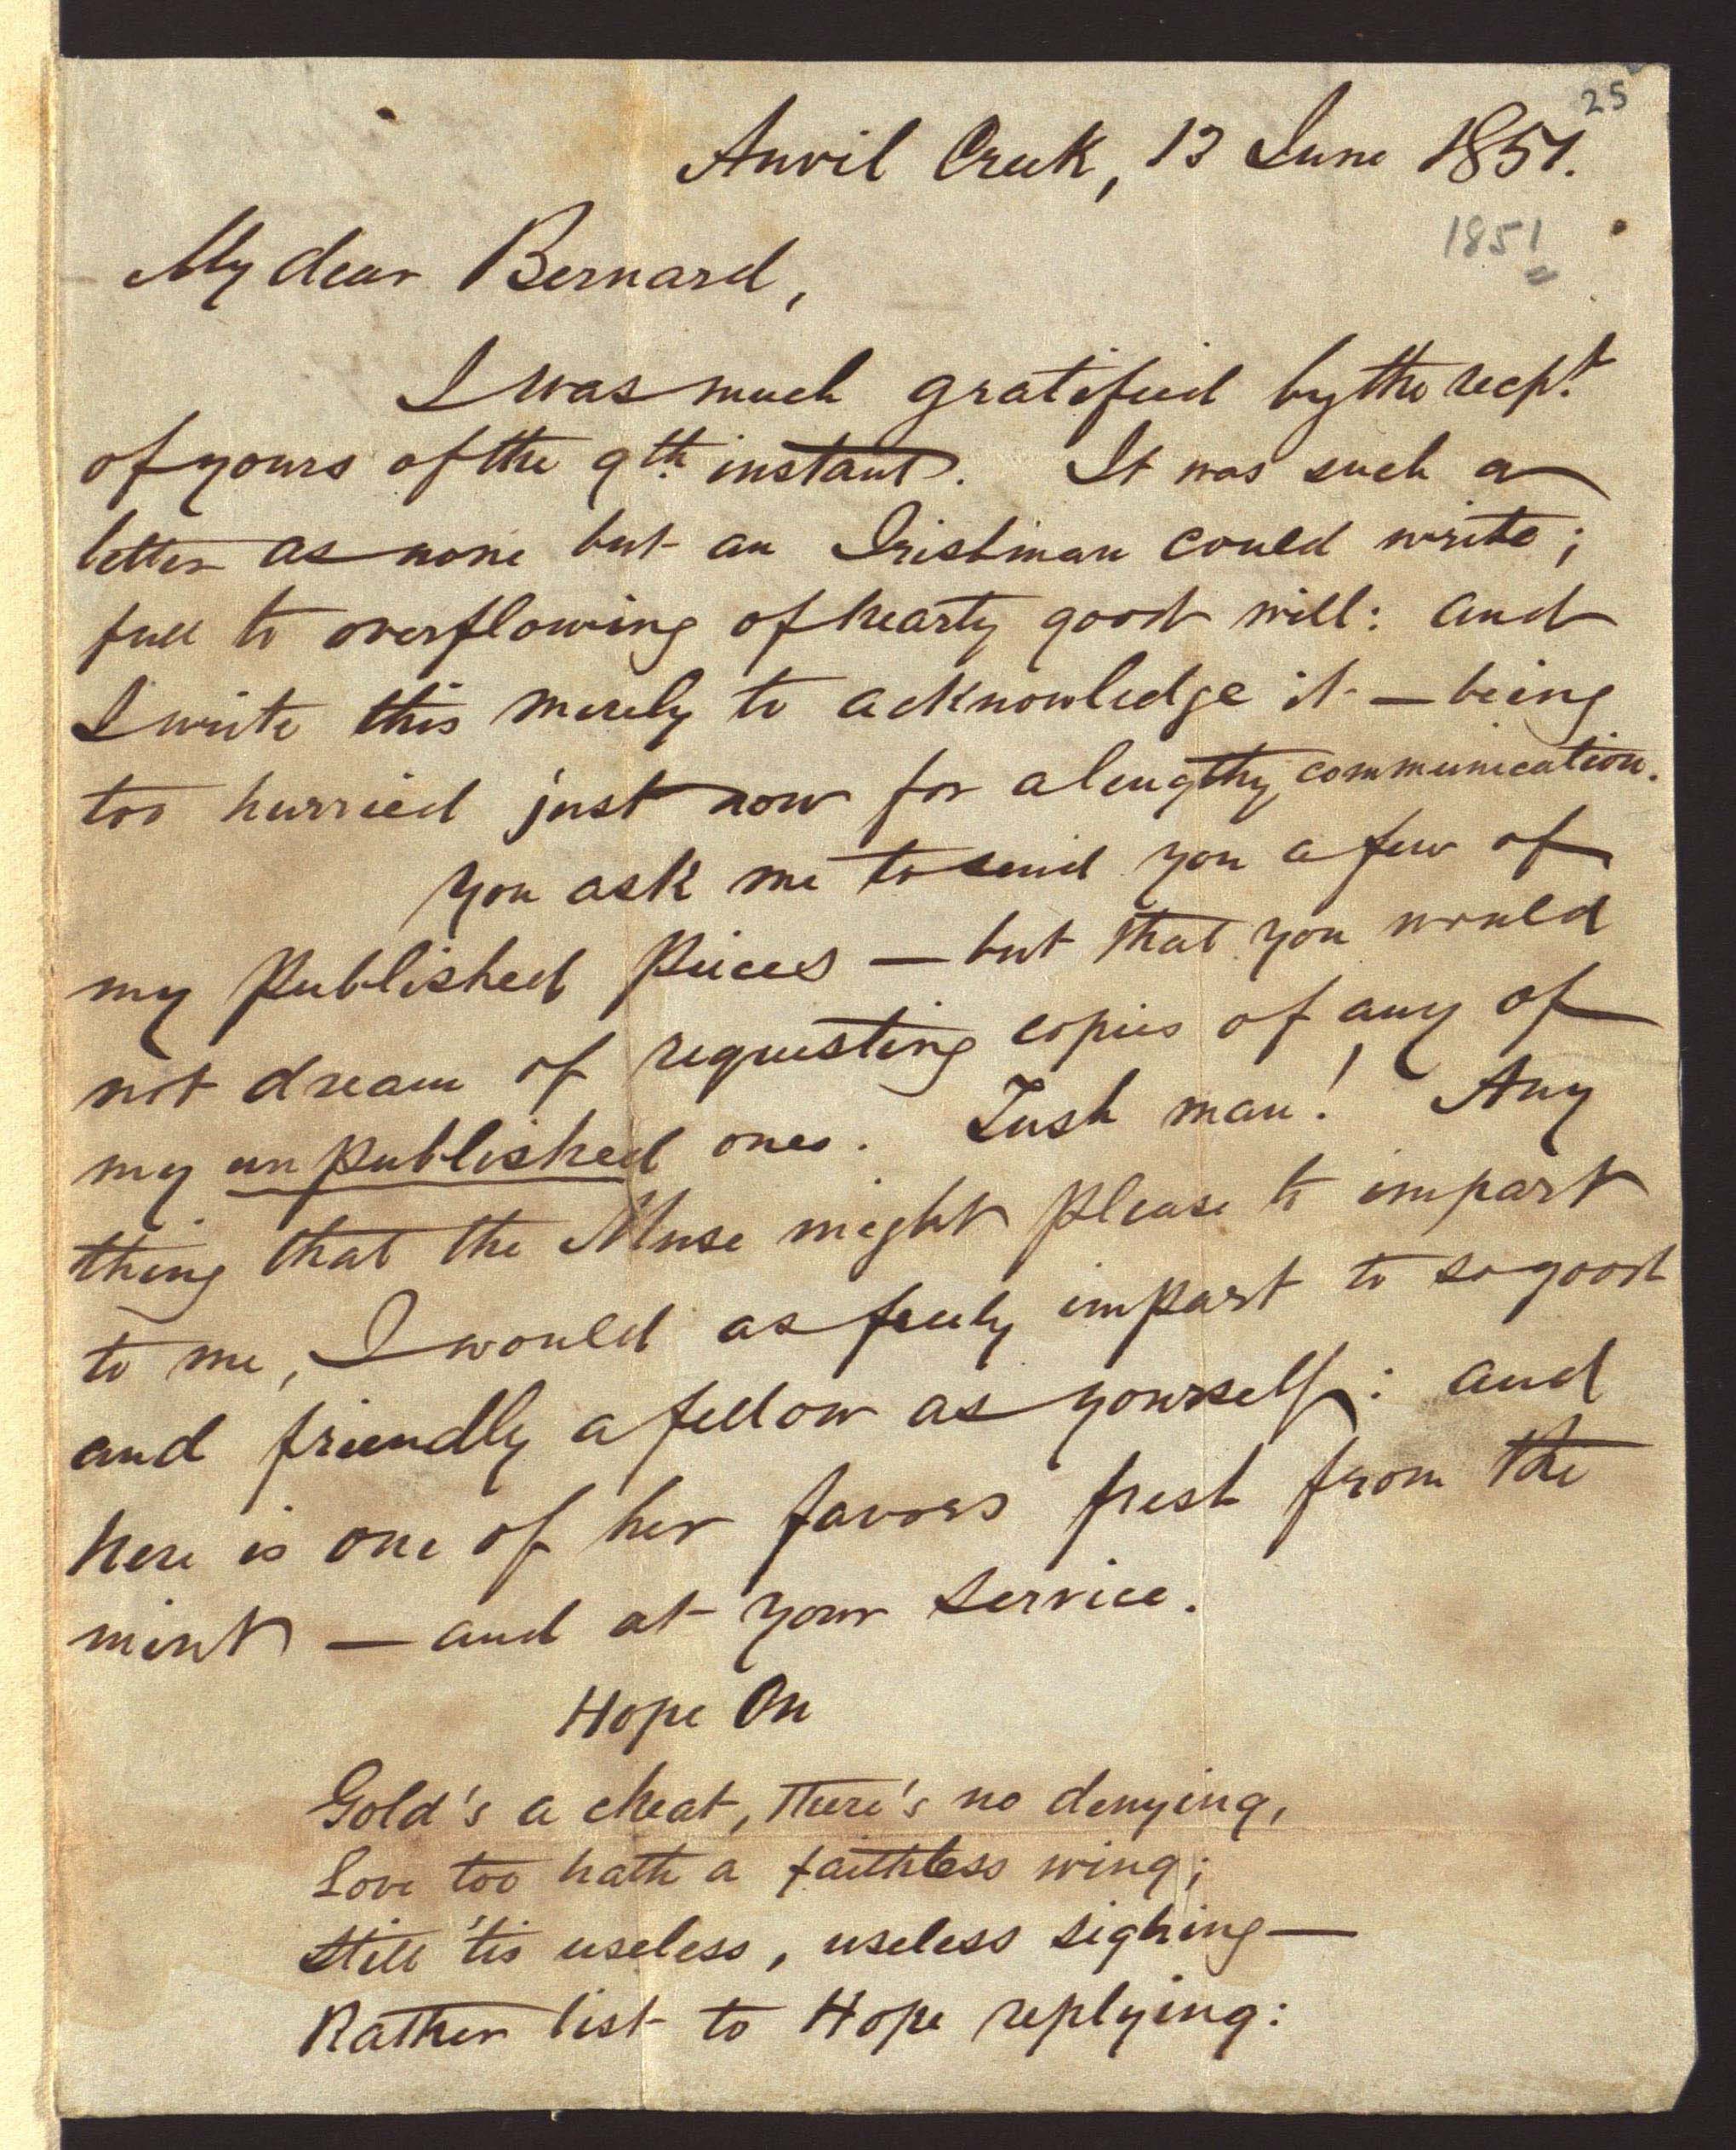 25
Anvil Creek, 13 June 1851.
1851
My dear Bernard,
I was much gratified by the recpt.
of yours of the 9th. instant. It was such a
letter as none but an Irishman could write;
full to overflowing of hearty good will: and
I write this merely to acknowledge it — being
too hurried just now for a lengthy communication.
You ask me to send you a few of
my published pieces — but that you would
not dream of requesting copies of any of
my unpublished ones. Tush man! Any
thing that the Muse might please to impart
to me, I would as freely impart to so good
and friendly a fellow as yourself: and
here is one of her favors fresh from the
mint — and at your service.
Hope On
Gold's a cheat, there's no denying,
Love too hath a faithless wing;
Still 'tis useless, useless sighing —
Rather list to Hope replying: